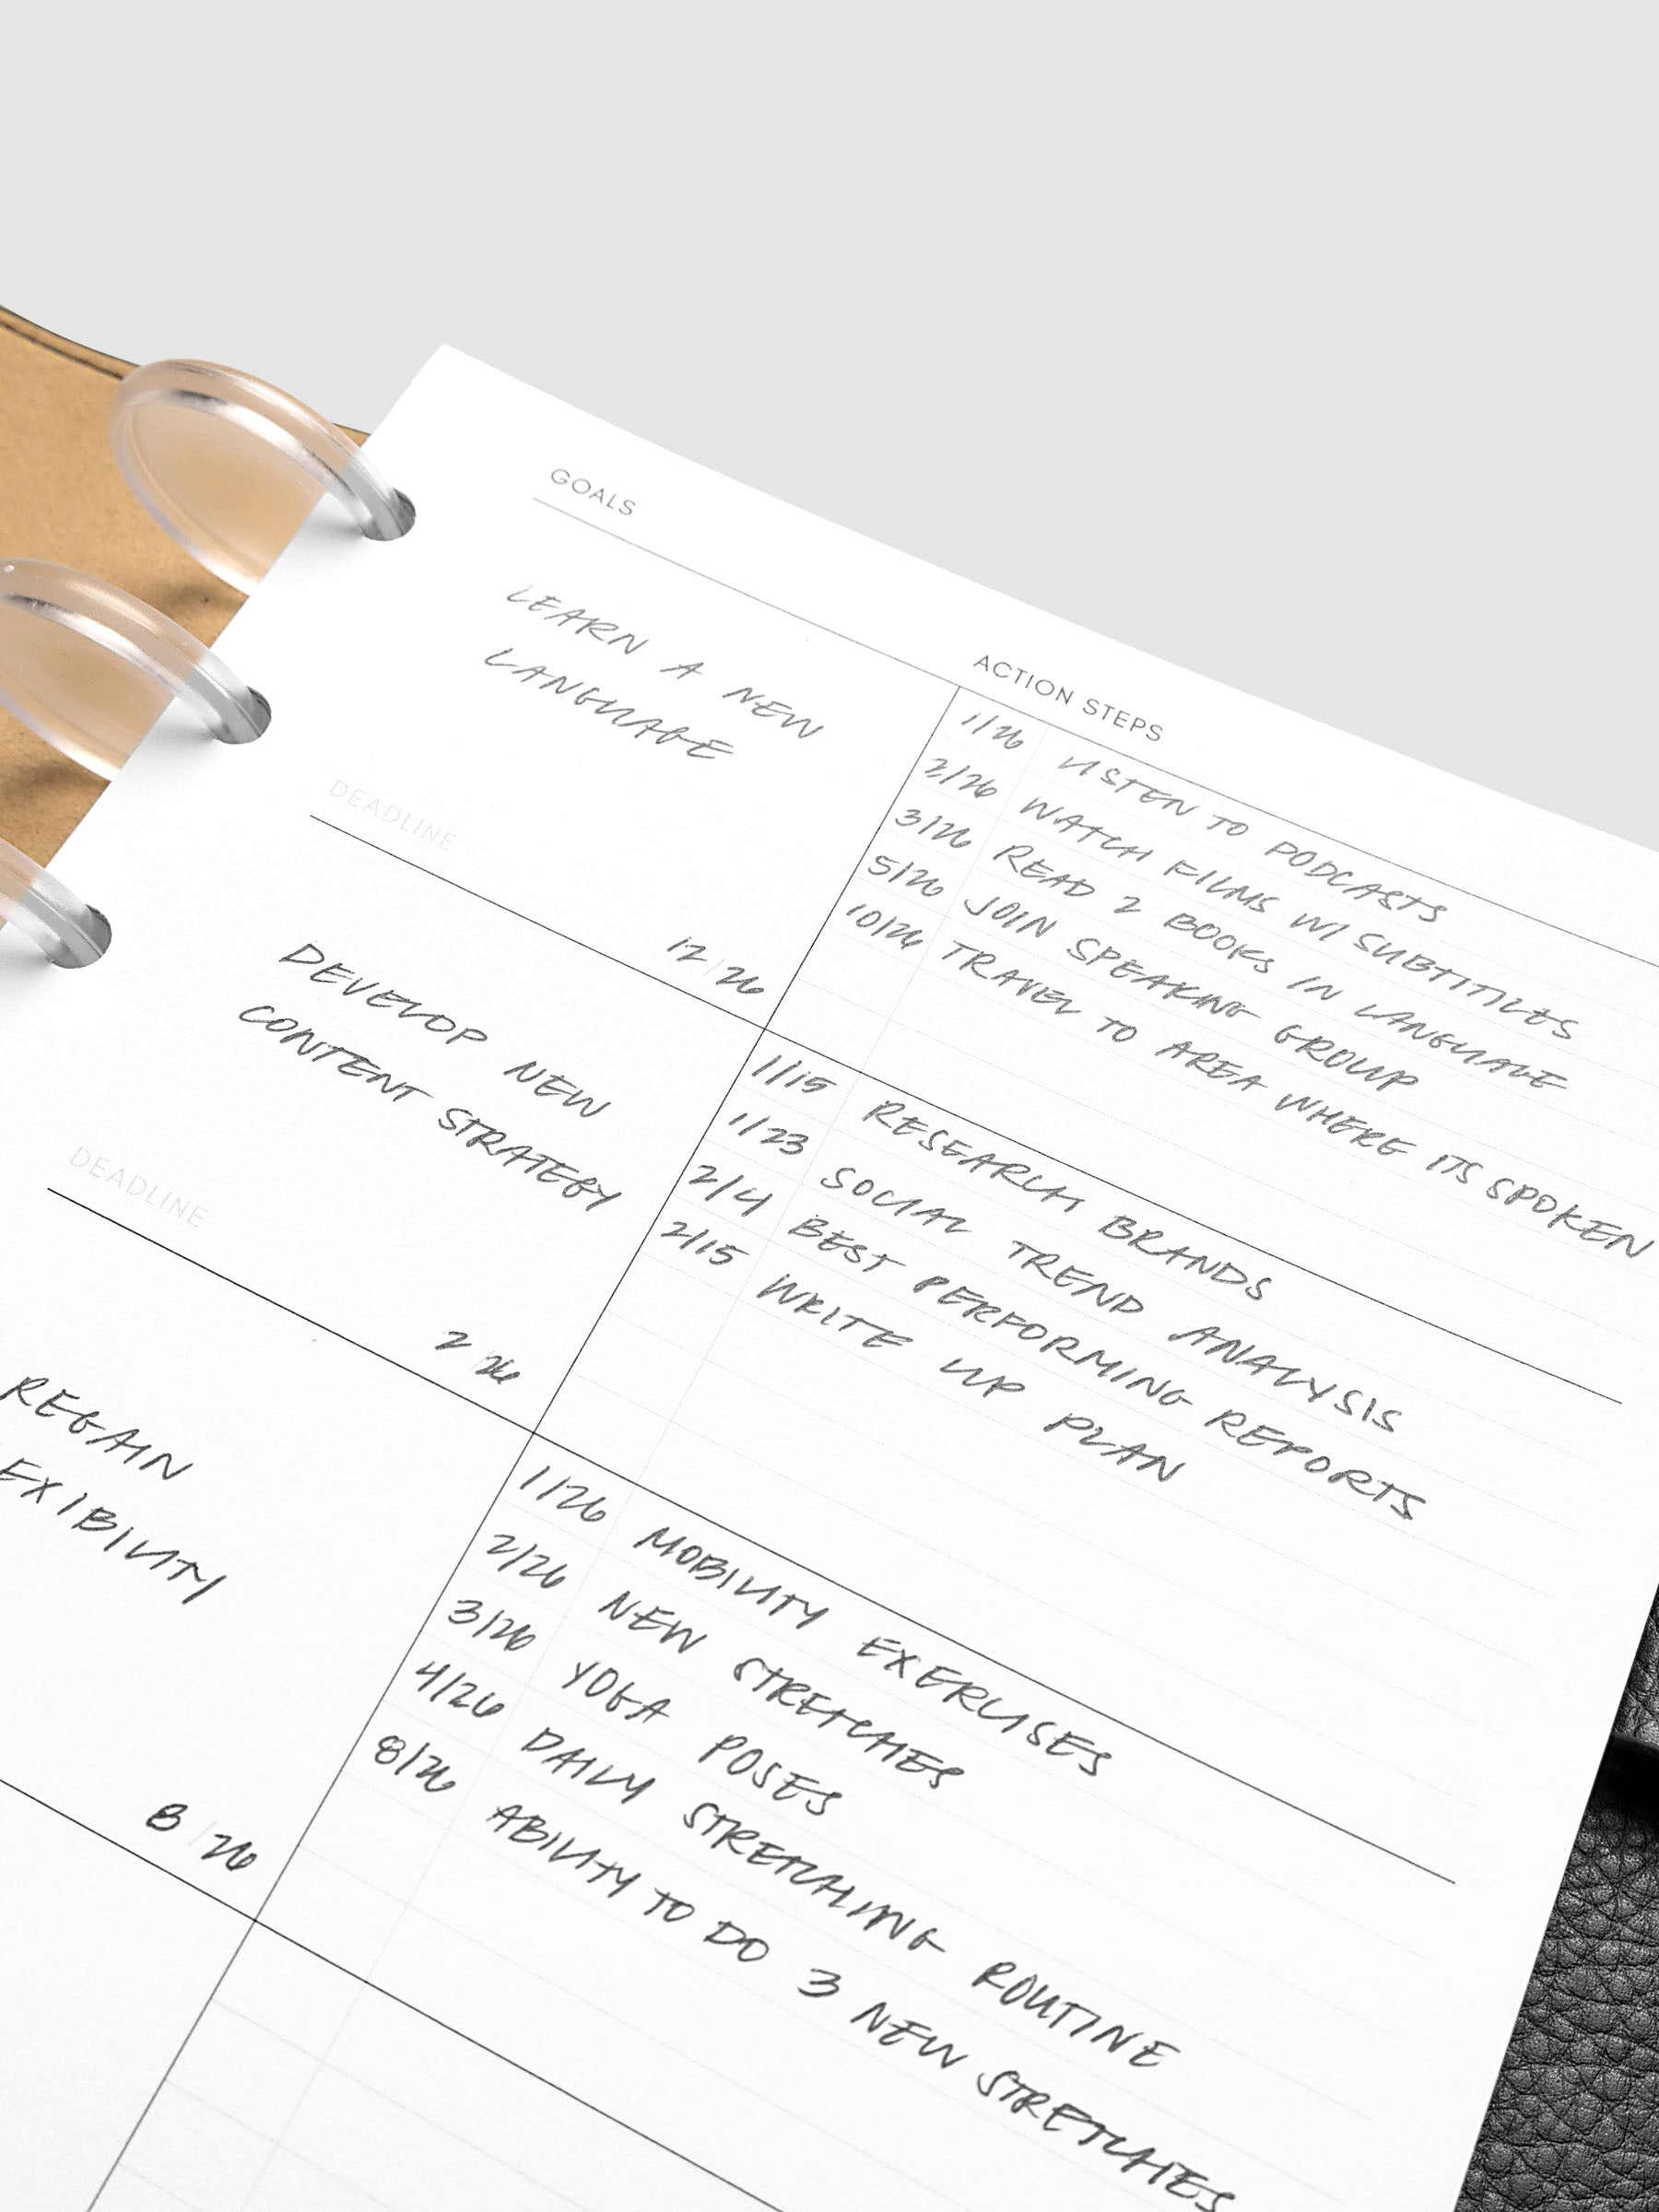 GOALS
ACTION STEPS
LEARN A NEW
LANGUAGE
DEADLINE
12/26
1/26 LISTEN TO PODCASTS
2/26 WATCH FILMS W/ SUBTITLES
3/26 READ 2 BOOKS IN LANGUAGE
5/26 JOIN SPEAKING GROUP
10/26 TRAVEL TO AREA WHERE ITS SPOKEN
DEVELOP NEW
CONTENT STRATEGY
DEADLINE
2/26
1/15 RESEARCH BRANDS
1/23 SOCIAL TREND ANALYSIS
2/4 BEST PERFORMING REPORTS
2/15 WRITE UP PLAN
REGAIN
EXIBILITY
8/26
1/26 MOBILITY EXERCISES
2/26 NEW STRETCHES
3/26 YOGA POSES
4/26 DAILY STRETCHING ROUTINE
8/26 ABILITY TO DO 3 NEW STRETCHES